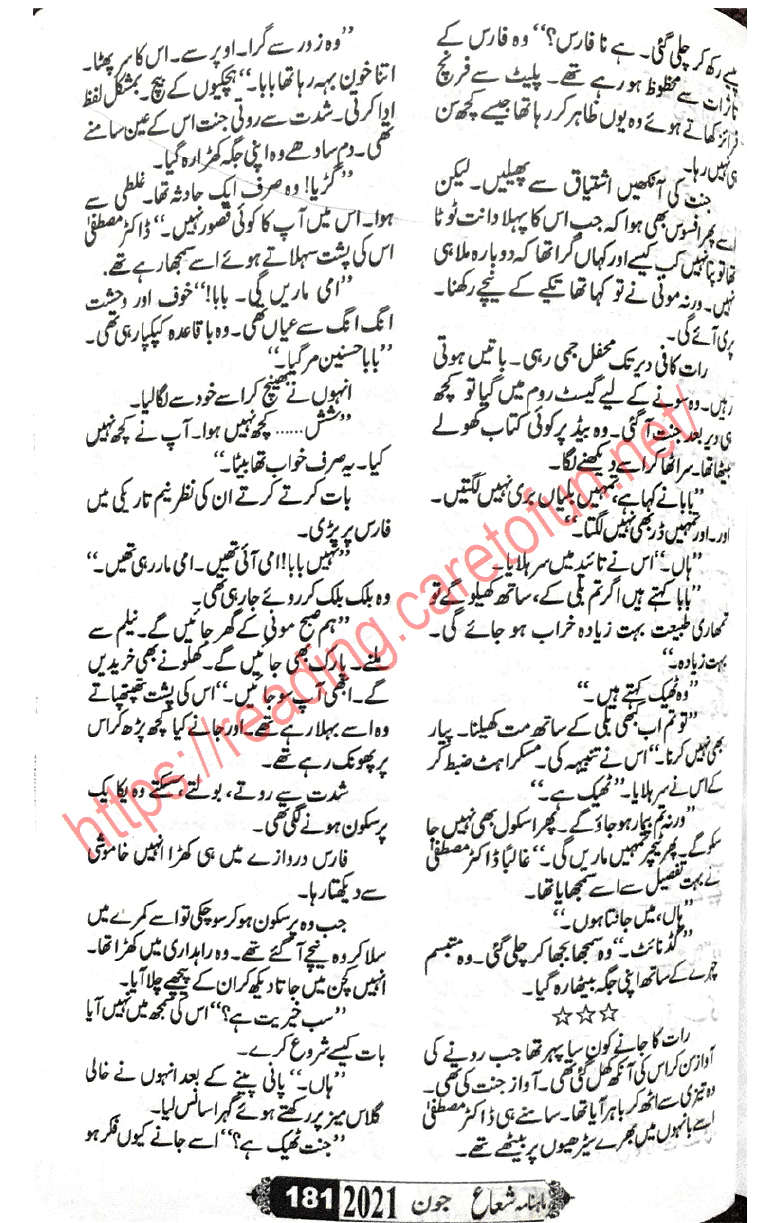 پیسے رکھ کر چلی گئی۔ ہے نا فارس؟“ وہ فارس کے
تاثرات سے محظوظ ہو رہے تھے۔ پلیٹ سے فرنچ
فرائز کھاتے ہوئے وہ یوں ظاہر کر رہا تھا جیسے کچھ سن
ہی نہیں رہا۔
جنت کی آنکھیں اشتیاق سے پھیلیں۔ لیکن
اسے پھر افسوس بھی ہوا کہ جب اس کا پہلا دانت ٹوٹا
تھا تو پتا نہیں کب کیسے اور کہاں گرا تھا کہ دوبارہ ملا ہی
نہیں۔ ورنہ مونی نے تو کہا تھا تکیے کے نیچے رکھنا۔
پری آئے گی۔
رات کافی دیر تک محفل جمی رہی۔ باتیں ہوتی
رہیں۔ وہ سونے کے لیے گیسٹ روم میں گیا تو کچھ
ہی دیر بعد جنت آ گئی۔ وہ بیڈ پر کوئی کتاب کھولے
بیٹھا تھا۔ سر اٹھا کر اسے دیکھنے لگا۔
”بابا نے کہا ہے، تمہیں بلیاں بری نہیں لگتیں۔
اور۔ اور تمہیں ڈر بھی نہیں لگتا۔“
”ہاں۔“ اس نے تائید میں سر ہلایا۔
”بابا کہتے ہیں اگر تم بلی کے، ساتھ کھیلو گے تو
تمہاری طبیعت بہت زیادہ خراب ہو جائے گی۔
بہت زیادہ۔“
”وہ ٹھیک کہتے ہیں۔“
”تو تم اب بھی بلی کے ساتھ مت کھیلنا۔ پیار
بھی نہیں کرنا۔“ اس نے تنبیہہ کی۔ مسکراہٹ ضبط کر
کے اس نے سر ہلایا۔ ”ٹھیک ہے۔“
”ورنہ تم بیمار ہو جاؤ گے۔ پھر اسکول بھی نہیں جا
سکو گے۔ پھر ٹیچر تمہیں ماریں گی۔“ غالباً ڈاکٹر مصطفیٰ
نے بہت تفصیل سے اسے سمجھایا تھا۔
”ہاں، میں جانتا ہوں۔“
”گڈ نائٹ۔“ وہ سمجھا بجھا کر چلی گئی۔ وہ متبسم
چہرے کے ساتھ اپنی جگہ بیٹھا رہ گیا۔
☆☆☆
رات کا جانے کون سا پہر تھا جب رونے کی
آواز سن کر اس کی آنکھ کھل گئی تھی۔ آواز جنت کی تھی۔
وہ تیزی سے اٹھ کر باہر آیا تھا۔ سامنے ہی ڈاکٹر مصطفیٰ
اسے بانہوں میں بھرے سیڑھیوں پر بیٹھے تھے۔
”وہ زور سے گرا۔ اوپر سے۔ اس کا سر پھٹا۔
اتنا خون بہہ رہا تھا بابا۔“ ہچکیوں کے بیچ۔ بمشکل لفظ
ادا کرتی۔ شدت سے روتی جنت اس کے عین سامنے
تھی۔ دم سادھے وہ اپنی جگہ کھڑا رہ گیا۔
”گڑیا! وہ صرف ایک حادثہ تھا۔ غلطی سے
ہوا۔ اس میں آپ کا کوئی قصور نہیں۔“ ڈاکٹر مصطفیٰ
اس کی پشت سہلاتے ہوئے اسے سمجھا رہے تھے۔
”امی ماریں گی۔ بابا!“ خوف اور وحشت
انگ انگ سے عیاں تھی۔ وہ باقاعدہ کپکپا رہی تھی۔
”بابا حسنین مر گیا۔“
انہوں نے بھینچ کر اسے خود سے لگا لیا۔
”شش...... کچھ نہیں ہوا۔ آپ نے کچھ نہیں
کیا۔ یہ صرف خواب تھا بیٹا۔“
بات کرتے کرتے ان کی نظر نیم تاریکی میں
فارس پر پڑی۔
”نہیں بابا! امی آئی تھیں۔ امی مار رہی تھیں۔“
وہ بلک بلک کر روئے جا رہی تھی۔
”ہم صبح مونی کے گھر جائیں گے۔ نیلم سے
ملنے۔ پارک بھی جائیں گے۔ کھلونے بھی خریدیں
گے۔ ابھی آپ سو جائیں۔“ اس کی پشت تھپتھپاتے
وہ اسے بہلا رہے تھے۔ اور جانے کیا کچھ پڑھ کر اس
پر پھونک رہے تھے۔
شدت سے روتے، بولتے، سسکتے وہ یکایک
پر سکون ہونے لگی تھی۔
فارس دروازے میں ہی کھڑا انہیں خاموشی
سے دیکھتا رہا۔
جب وہ پر سکون ہو کر سو چکی تو اسے کمرے میں
سلا کر وہ نیچے آ گئے تھے۔ وہ راہداری میں کھڑا تھا۔
انہیں کچن میں جاتا دیکھ کر ان کے پیچھے چلا آیا۔
”سب خیریت ہے؟“ اس کی سمجھ میں نہیں آیا
بات کیسے شروع کرے۔
”ہاں۔“ پانی پینے کے بعد انہوں نے خالی
گلاس میز پر رکھتے ہوئے گہرا سانس لیا۔
”جنت ٹھیک ہے؟“ اسے جانے کیوں فکر ہو
ماہنامہ شعاع جون 2021 181
https://reading.caretofun.net/